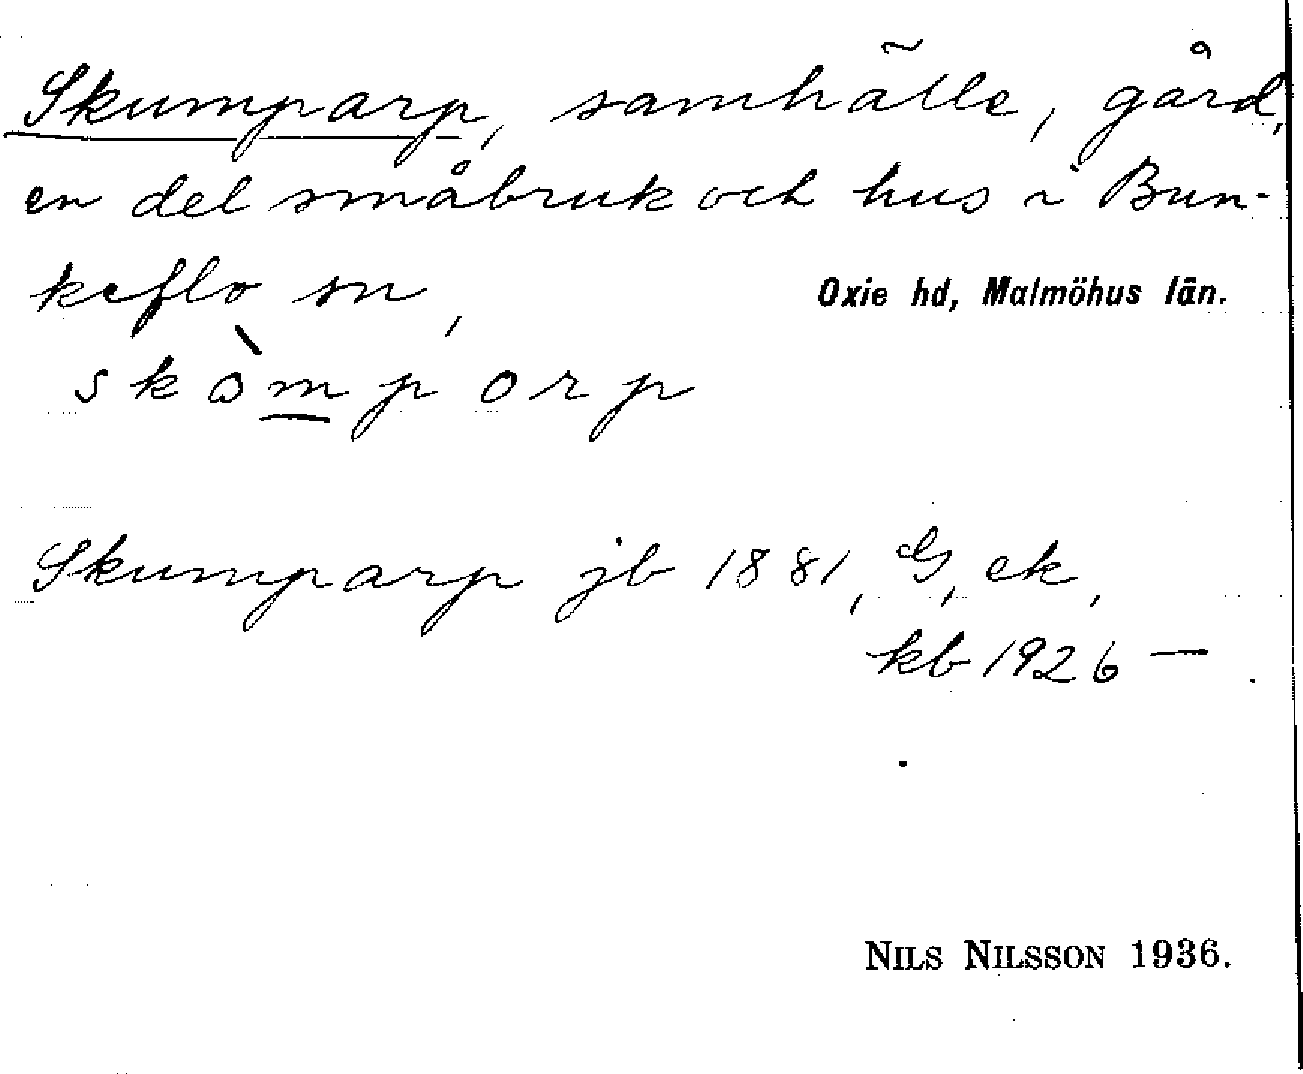 Skumparp, samhälle, gård,
en del småbruk och hus i Bun-
keflo sn,
Oxie hd, Malmöhus län.
skòmporp
Skumparp jb 1881, G, ek,
kb 1926 —
NILS NILSSON 1936.